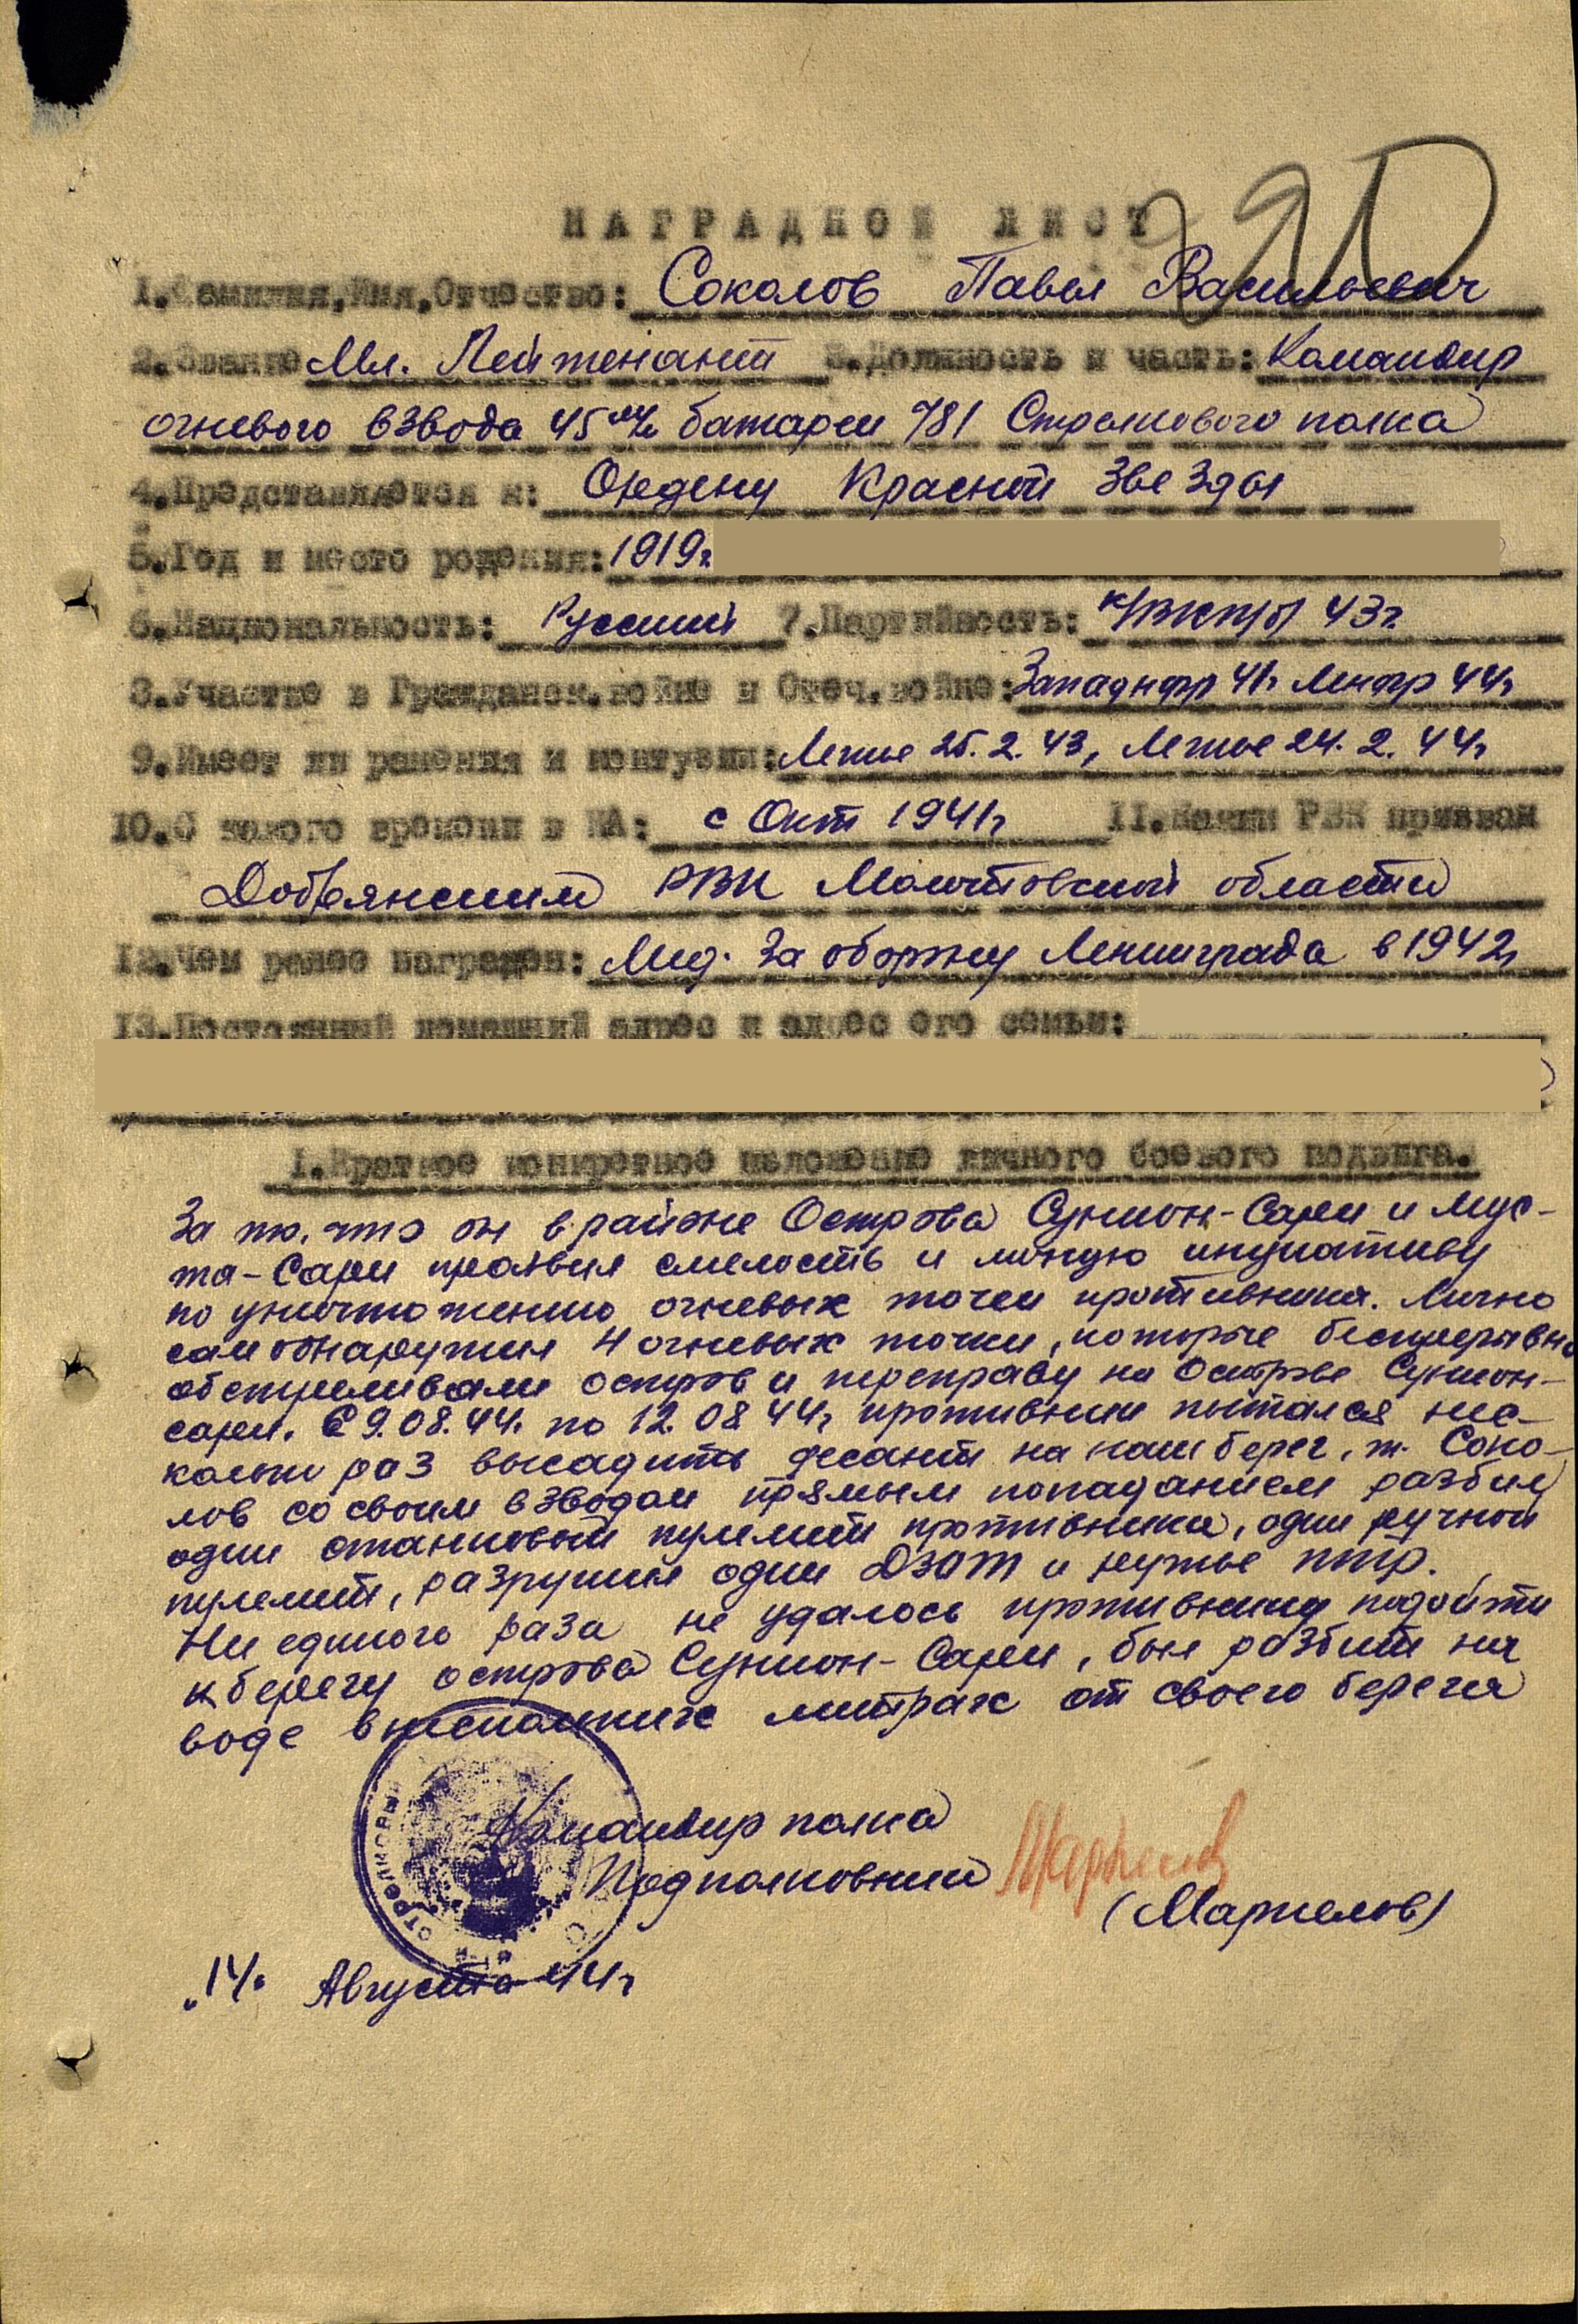 НАГРАДНОЙ ЛИСТ
1.Фамилия,Имя,Отчество: Соколов Павел Васильевич
2.Звание Мл. Лейтенант 3.Должность и часть: Командир
огневого взвода 45 м/м батареи 781 Стрелкового полка
4.Представляется к: Ордену Красной Звезды
5.Год и место рождения: 1919г
6.Национальность: Русский 7.Партийность: к/ВКП(б) 43г
8.Участие в Гражданск.войне и Отеч.войне: Запад фр 41г Ленфр 44г
9.Имеет ли ранения и контузии: Легкое 25.2.43, Легкое 24.2.44г
10.С какого времени в КА: с Окт 1941г 11.Каким РВК призван
Добрянским РВК Молотовской области
12.Чем ранее награжден: Мед. За оборону Ленинграда в 1942г
13.Постоянный домашний адрес и адрес его семьи:
1.Краткое конкретное изложение личного боевого подвига.
За то, что он в районе Острова Сунион-Сари и Мус-
та-Сари проявил смелость и личную инциативу
по уничтожению огневых точек противника. Лично
сам обнаружил 4 огневых точки, которые беспрерывно
обстреливали остров и переправу на Острове Сунион-
сари. С 9.08.44. по 12.08 44г противник пытался нес-
колько раз высадить десант на наш берег, т. Соко-
лов со своим взводом прямым попаданием разбил
один станковый пулемет противника, один ручной
пулемет, разрушил один ДЗОТ и ружье птр.
Ни единого раза не удалось противнику подойти
к берегу острова Сунион-Сари, был разбит на
воде в нескольких метрах от своего берега
Командир полка
Подполковник
(Маркелов)
СТРЕЛКОВЫЙ
"14" Августа 44г